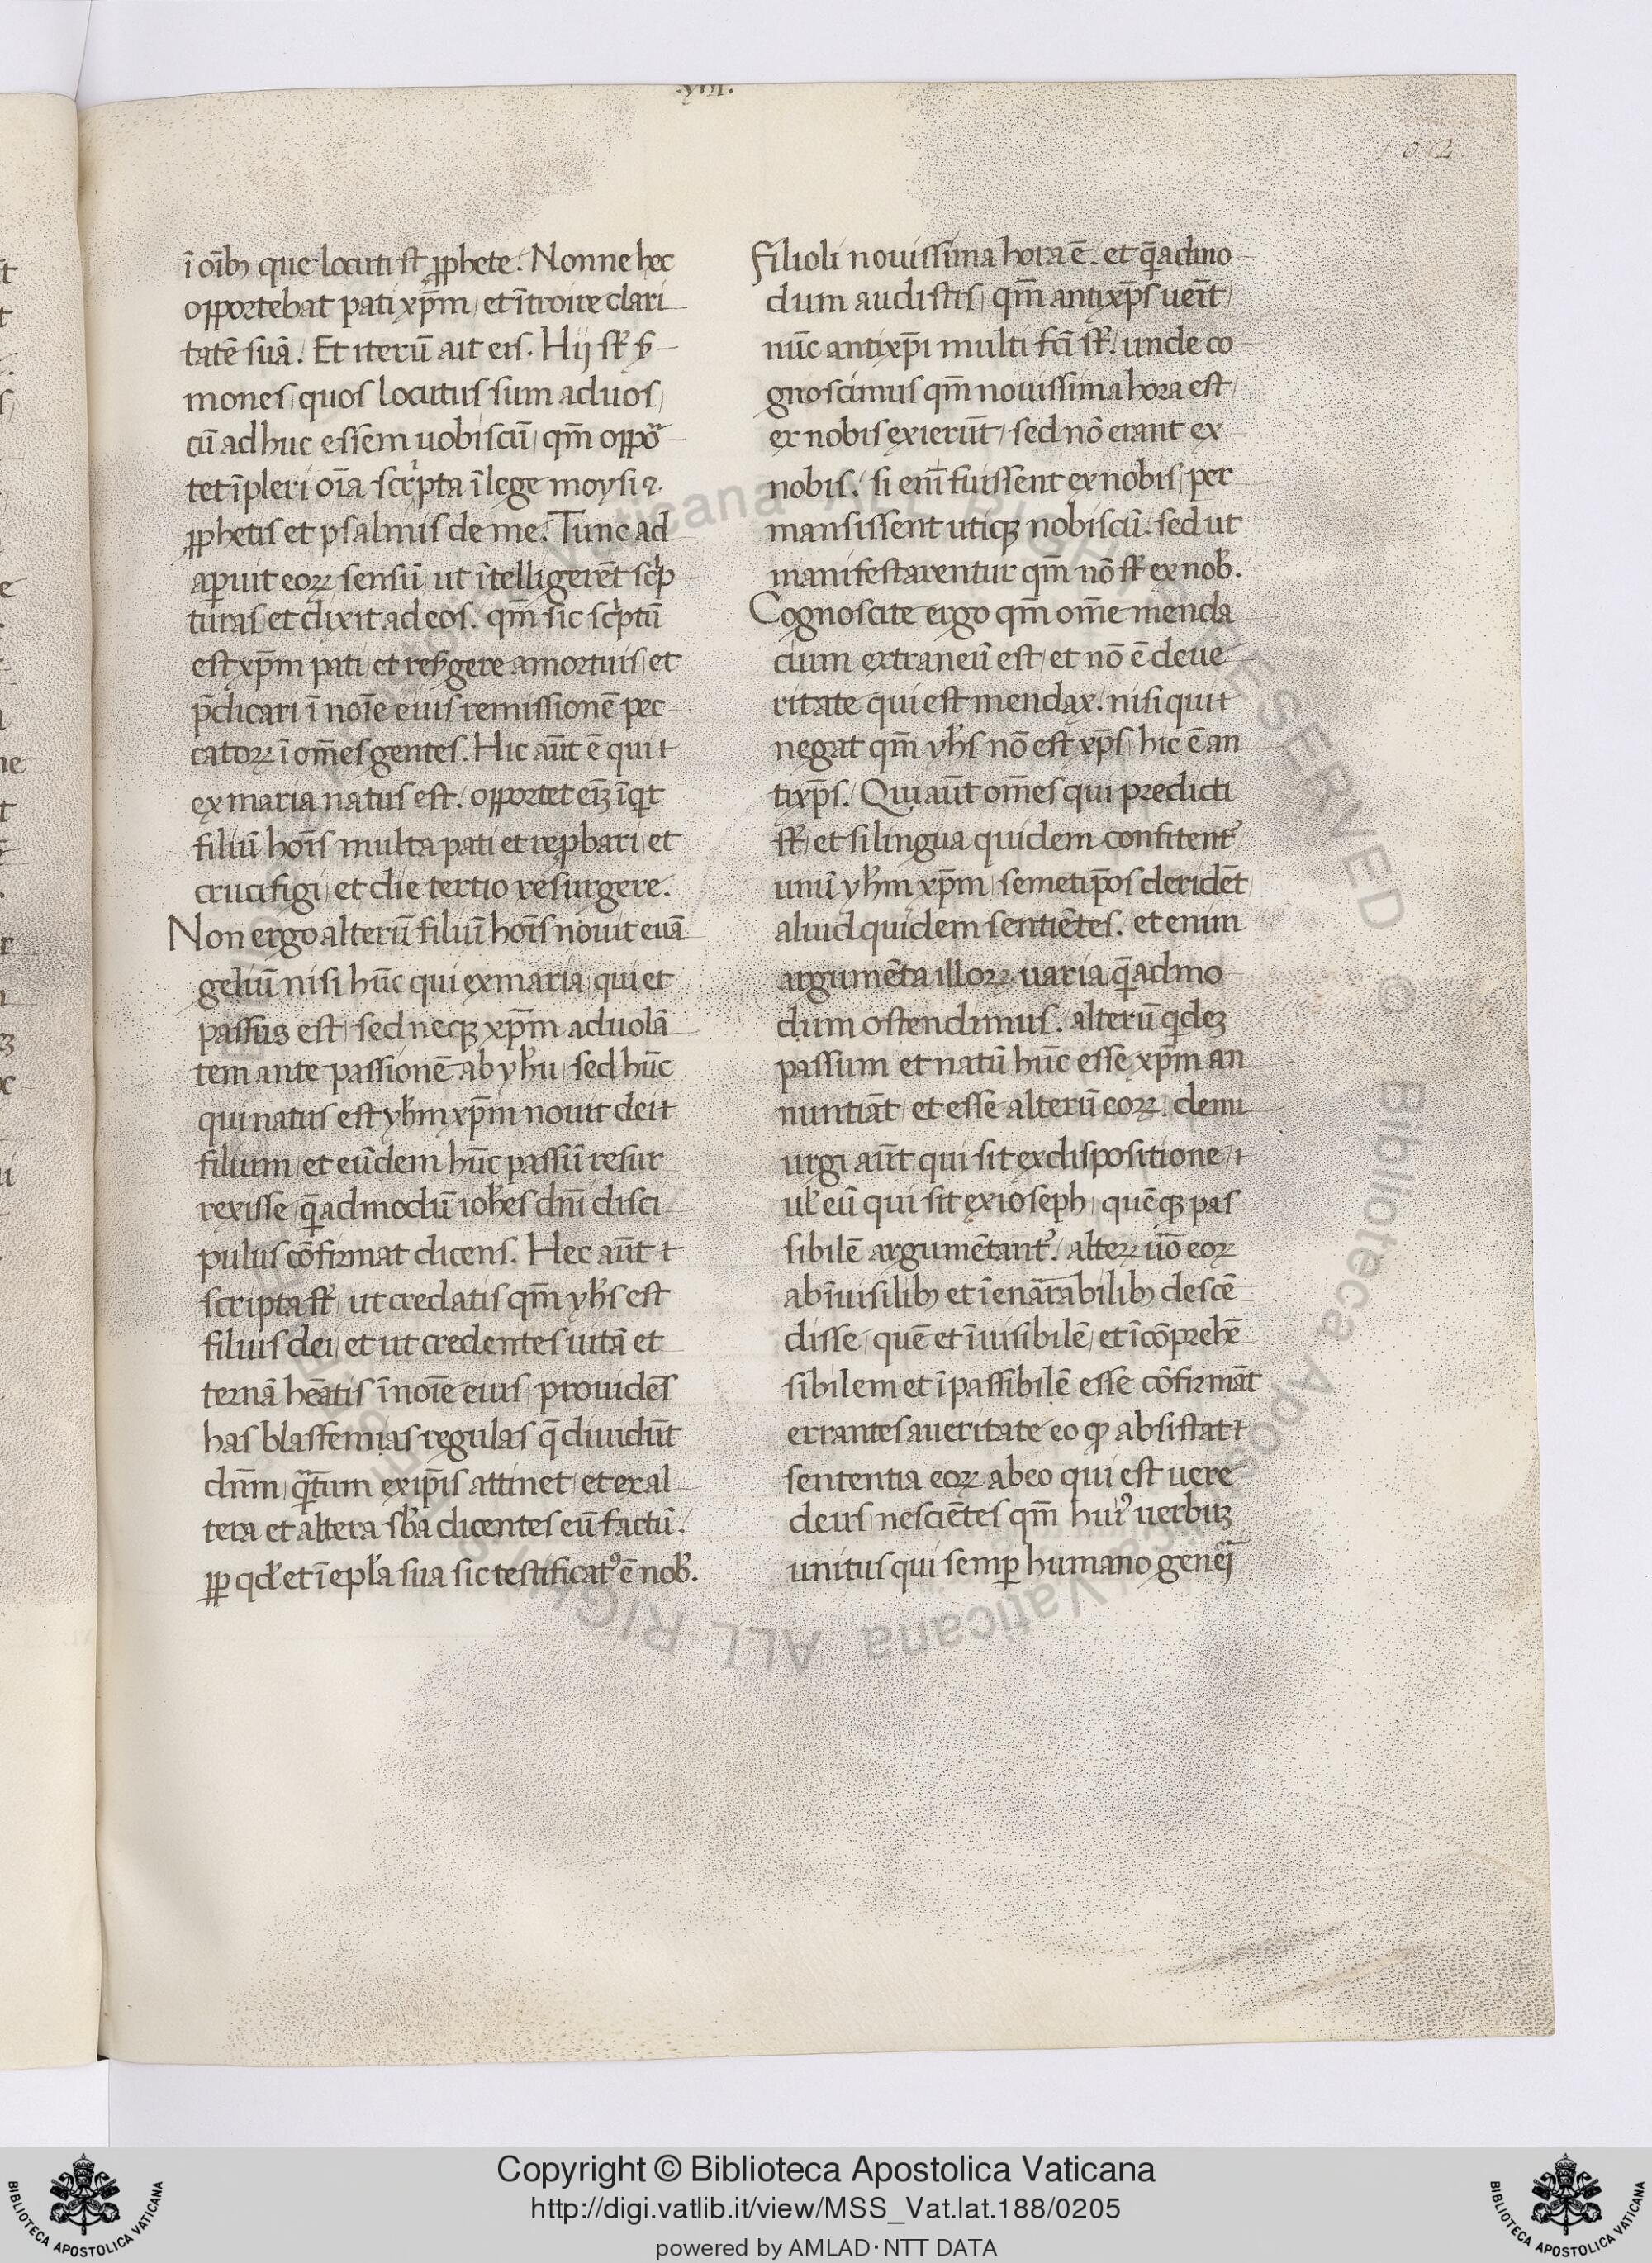 .xviii.
102
ī oībꝫ que locuti sт̄ ꝓphete. Nonne hec
opportebat pati xp̄m, et ītroire clari
tatē suā. Et iterū ait eis. Hij st̄ s̄
mones, quos locutus sum ad uos,
cū ad huc essem uobiscū, qm̄ oppor
tet īpleri oīa scripta ī lege moysi ⁊
ꝓphetis et psalmis de me. Tunc ad
aperuit eoꝝ sensū, ut ītelligerēt scrip
turas et dixit ad eos. qm̄ sic scriptū
est xp̄m pati et resurgere a mortuis, et
p̄dicari ī noīe eius remissionē pec
catoꝝ ī om̄es gentes. Hic aūt ē qui
ex maria natus est. opportet eīꝫ īqͥt
filiū hoīs multa pati et reꝓbari, et
crucifigi, et die tertio resurgere.
Non ergo alterū filiū hoīs nouit euā
geliū nisi hūc qui ex maria, qui et
passus est, sed neqꝫ xp̄m aduolā
tem ante passionē ab yhu, sed hūc
qui natus est yhm xp̄m nouit dei
filium, et eūdem hūc passū resur
rexisse, q̄admodū iohes dn̄i disci
pulus cōfirmat dicens. Hec aūt
scripta st̄, ut credatis qm̄ yhs est
filius dei, et ut credentes uitā et
ternā heātis ī noīe eius, prouidēs
has blasfemias regulas q̄ diuidūt
dn̄m, qͣtum ex ip̄is attinet, et ex al
tera et altera sba dicentes eū factū.
ꝓp qd et ī epla sua sic testificatꝰ ē nob.
Filioli nouissima hora ē. et q̄admo
dum audistis, qm̄ antixp̄s ueīt,
nūc antixp̄i multi fci st̄. unde co
gnoscimus qm̄ nouissima hora est,
ex nobis exierūt, sed nō erant ex
nobis. si enī fuissent ex nobis, per
mansissent utiqꝫ nobiscū. sed ut
manifestarentur qm̄ nō st̄ ex nob.
Cognoscite ergo qm̄ om̄e menda
cium extraneū est, et nō ē de ue
ritate qui est mendax. nisi qui
negat qm̄ yhs nō est xp̄s, hic ē an
tixp̄s. Qui aūt om̄es qui predicti
st̄, et si lingua quidem confitentꝰ
unū yhm xp̄m, semetip̄os deridēt,
aliud quidem sentiētes. et enim
argumēta illoꝝ uaria, q̄admo
dum ostendimus. alterū qͥdeꝫ
passum et natū hūc esse xp̄m an
nuntiāt, et esse alterū eoꝝ. demi
urgi aūt qui sit ex dispositione,
ul eū qui sit ex ioseph, quēqꝫ pas
sibilē argumētantꝰ. alteꝝ uō eoꝝ
ab īuisilibꝫ et īenarrabilibꝫ descē
disse, quē et īuisibilē, et īcōprehē
sibilem et īpassibilē esse cōfirmāt
errantes a ueritate eo ꝙ absistat
sententia eoꝝ ab eo qui est uere
deus, nesciētes qm̄ huiꝰ uerbuꝫ
unitus qui semꝑ humano geneͥ
Copyright © Biblioteca Apostolica Vaticana
http://digi.vatlib.it/view/MSS_Vat.lat.188/0205
powered by AMLAD·NTT DATA